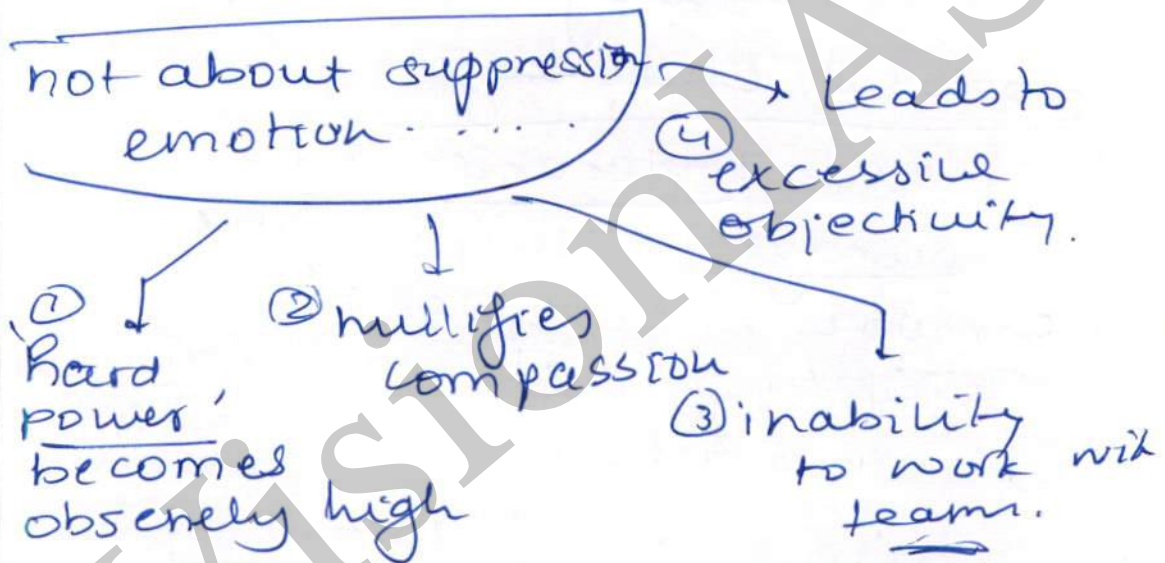 not about suppression
emotion . . . . .
→ Leads to
④
excessive
objectivity.
①
'hard
power'
becomes
obsenely high
② nullifies
compassion
③ inability
to work with
teams.
VisionIAS